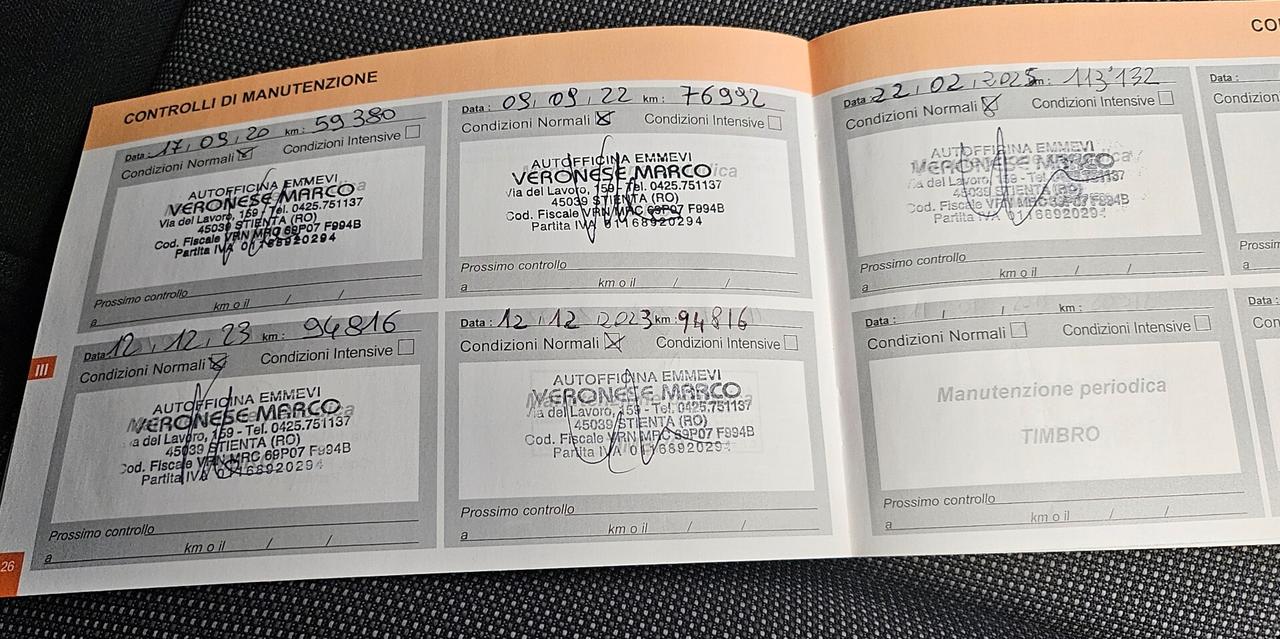 CONTROLLI DI MANUTENZIONE
Data: 17, 09, 20 km: 59380
Condizioni Normali Condizioni Intensive
AUTOFFICINA EMMEVI
VERONESE MARCO
Via del Lavoro, 159 - Tel. 0425.751137
45039 STIENTA (RO)
Cod. Fiscale VRN MRC 69P07 F994B
Partita IVA 01168920294
Prossimo controllo
a km o il / /
Data: 09, 09, 22 km: 76992
Condizioni Normali Condizioni Intensive
AUTOFFICINA EMMEVI
VERONESE MARCO
Via del Lavoro, 159 - Tel. 0425.751137
45039 STIENTA (RO)
Cod. Fiscale VRN MRC 69P07 F994B
Partita IVA 01168920294
Prossimo controllo
a km o il / /
Data: 12, 12, 23 km: 94816
Condizioni Normali Condizioni Intensive
AUTOFFICINA EMMEVI
VERONESE MARCO
Via del Lavoro, 159 - Tel. 0425.751137
45039 STIENTA (RO)
Cod. Fiscale VRN MRC 69P07 F994B
Partita IVA 01168920294
Prossimo controllo
a km o il / /
Data: 12, 12, 2023 km: 94816
Condizioni Normali Condizioni Intensive
AUTOFFICINA EMMEVI
VERONESE MARCO
Via del Lavoro, 159 - Tel. 0425.751137
45039 STIENTA (RO)
Cod. Fiscale VRN MRC 69P07 F994B
Partita IVA 01168920294
Prossimo controllo
a km o il / /
III
26
CO
Data: 22, 02, 2025 km: 113'132
Condizioni Normali Condizioni Intensive
AUTOFFICINA EMMEVI
VERONESE MARCO
Via del Lavoro, 159 - Tel. 0425.751137
45039 STIENTA (RO)
Cod. Fiscale VRN MRC 69P07 F994B
Partita IVA 01168920294
Prossimo controllo
a km o il / /
Data: / / km:
Condizioni Normali Condizioni Intensive
Manutenzione periodica
TIMBRO
Prossimo controllo
a km o il / /
Data:
Condizi
Prossim
a
Data:
Condi
Pross
a